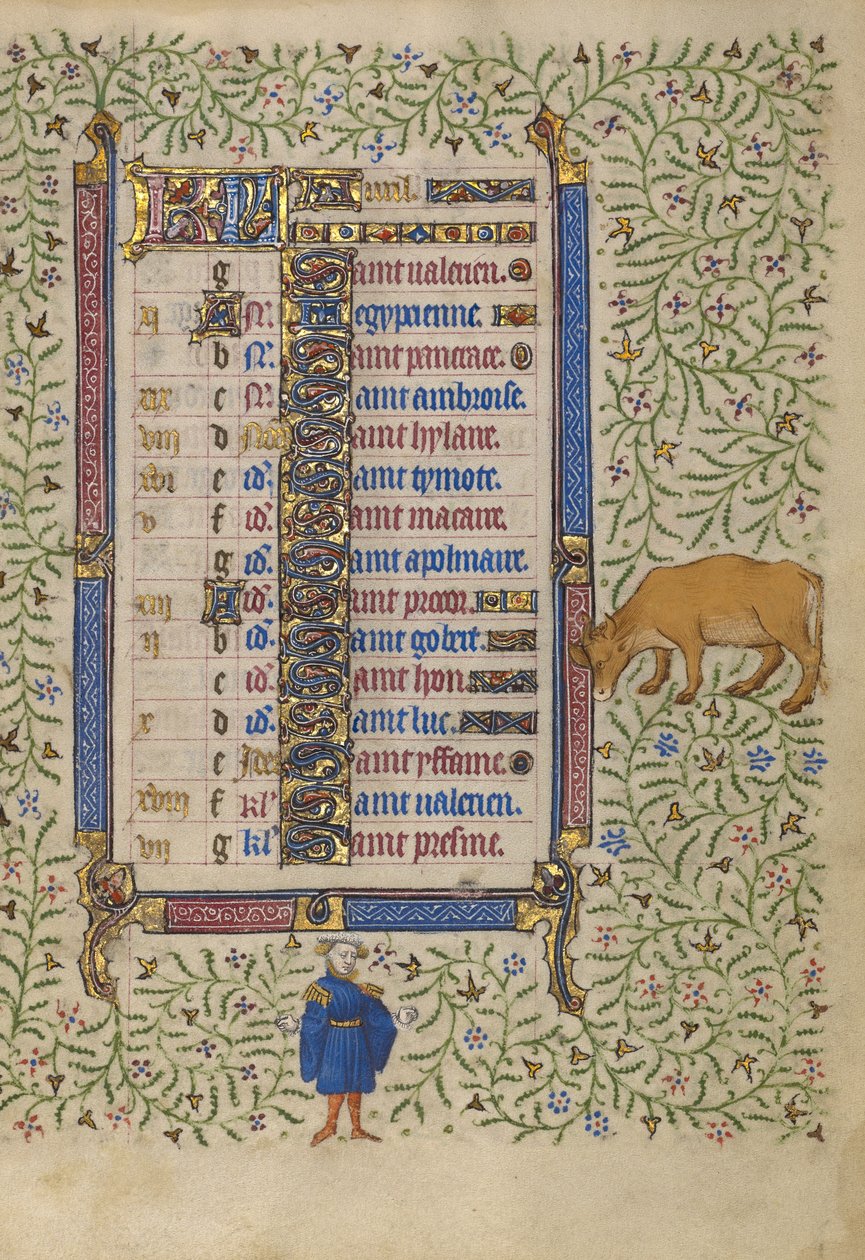 KL Auril.
g Saint ualerien.
xi A N. Legypcienne.
b N. Saint pancrace.
xix c N. Saint ambroise.
viii d Noñ Saint hylaire.
xvi e id. Saint tymote.
v f id. Saint macaire.
g id. Saint apolinaire.
xiii A id. Saint procor.
ii b id. Saint gobert.
c id. Saint lyon.
x d id. Saint luc.
e Ides Saint yffame.
xviii f kl' Saint ualerien.
vii g kl' Saint presme.